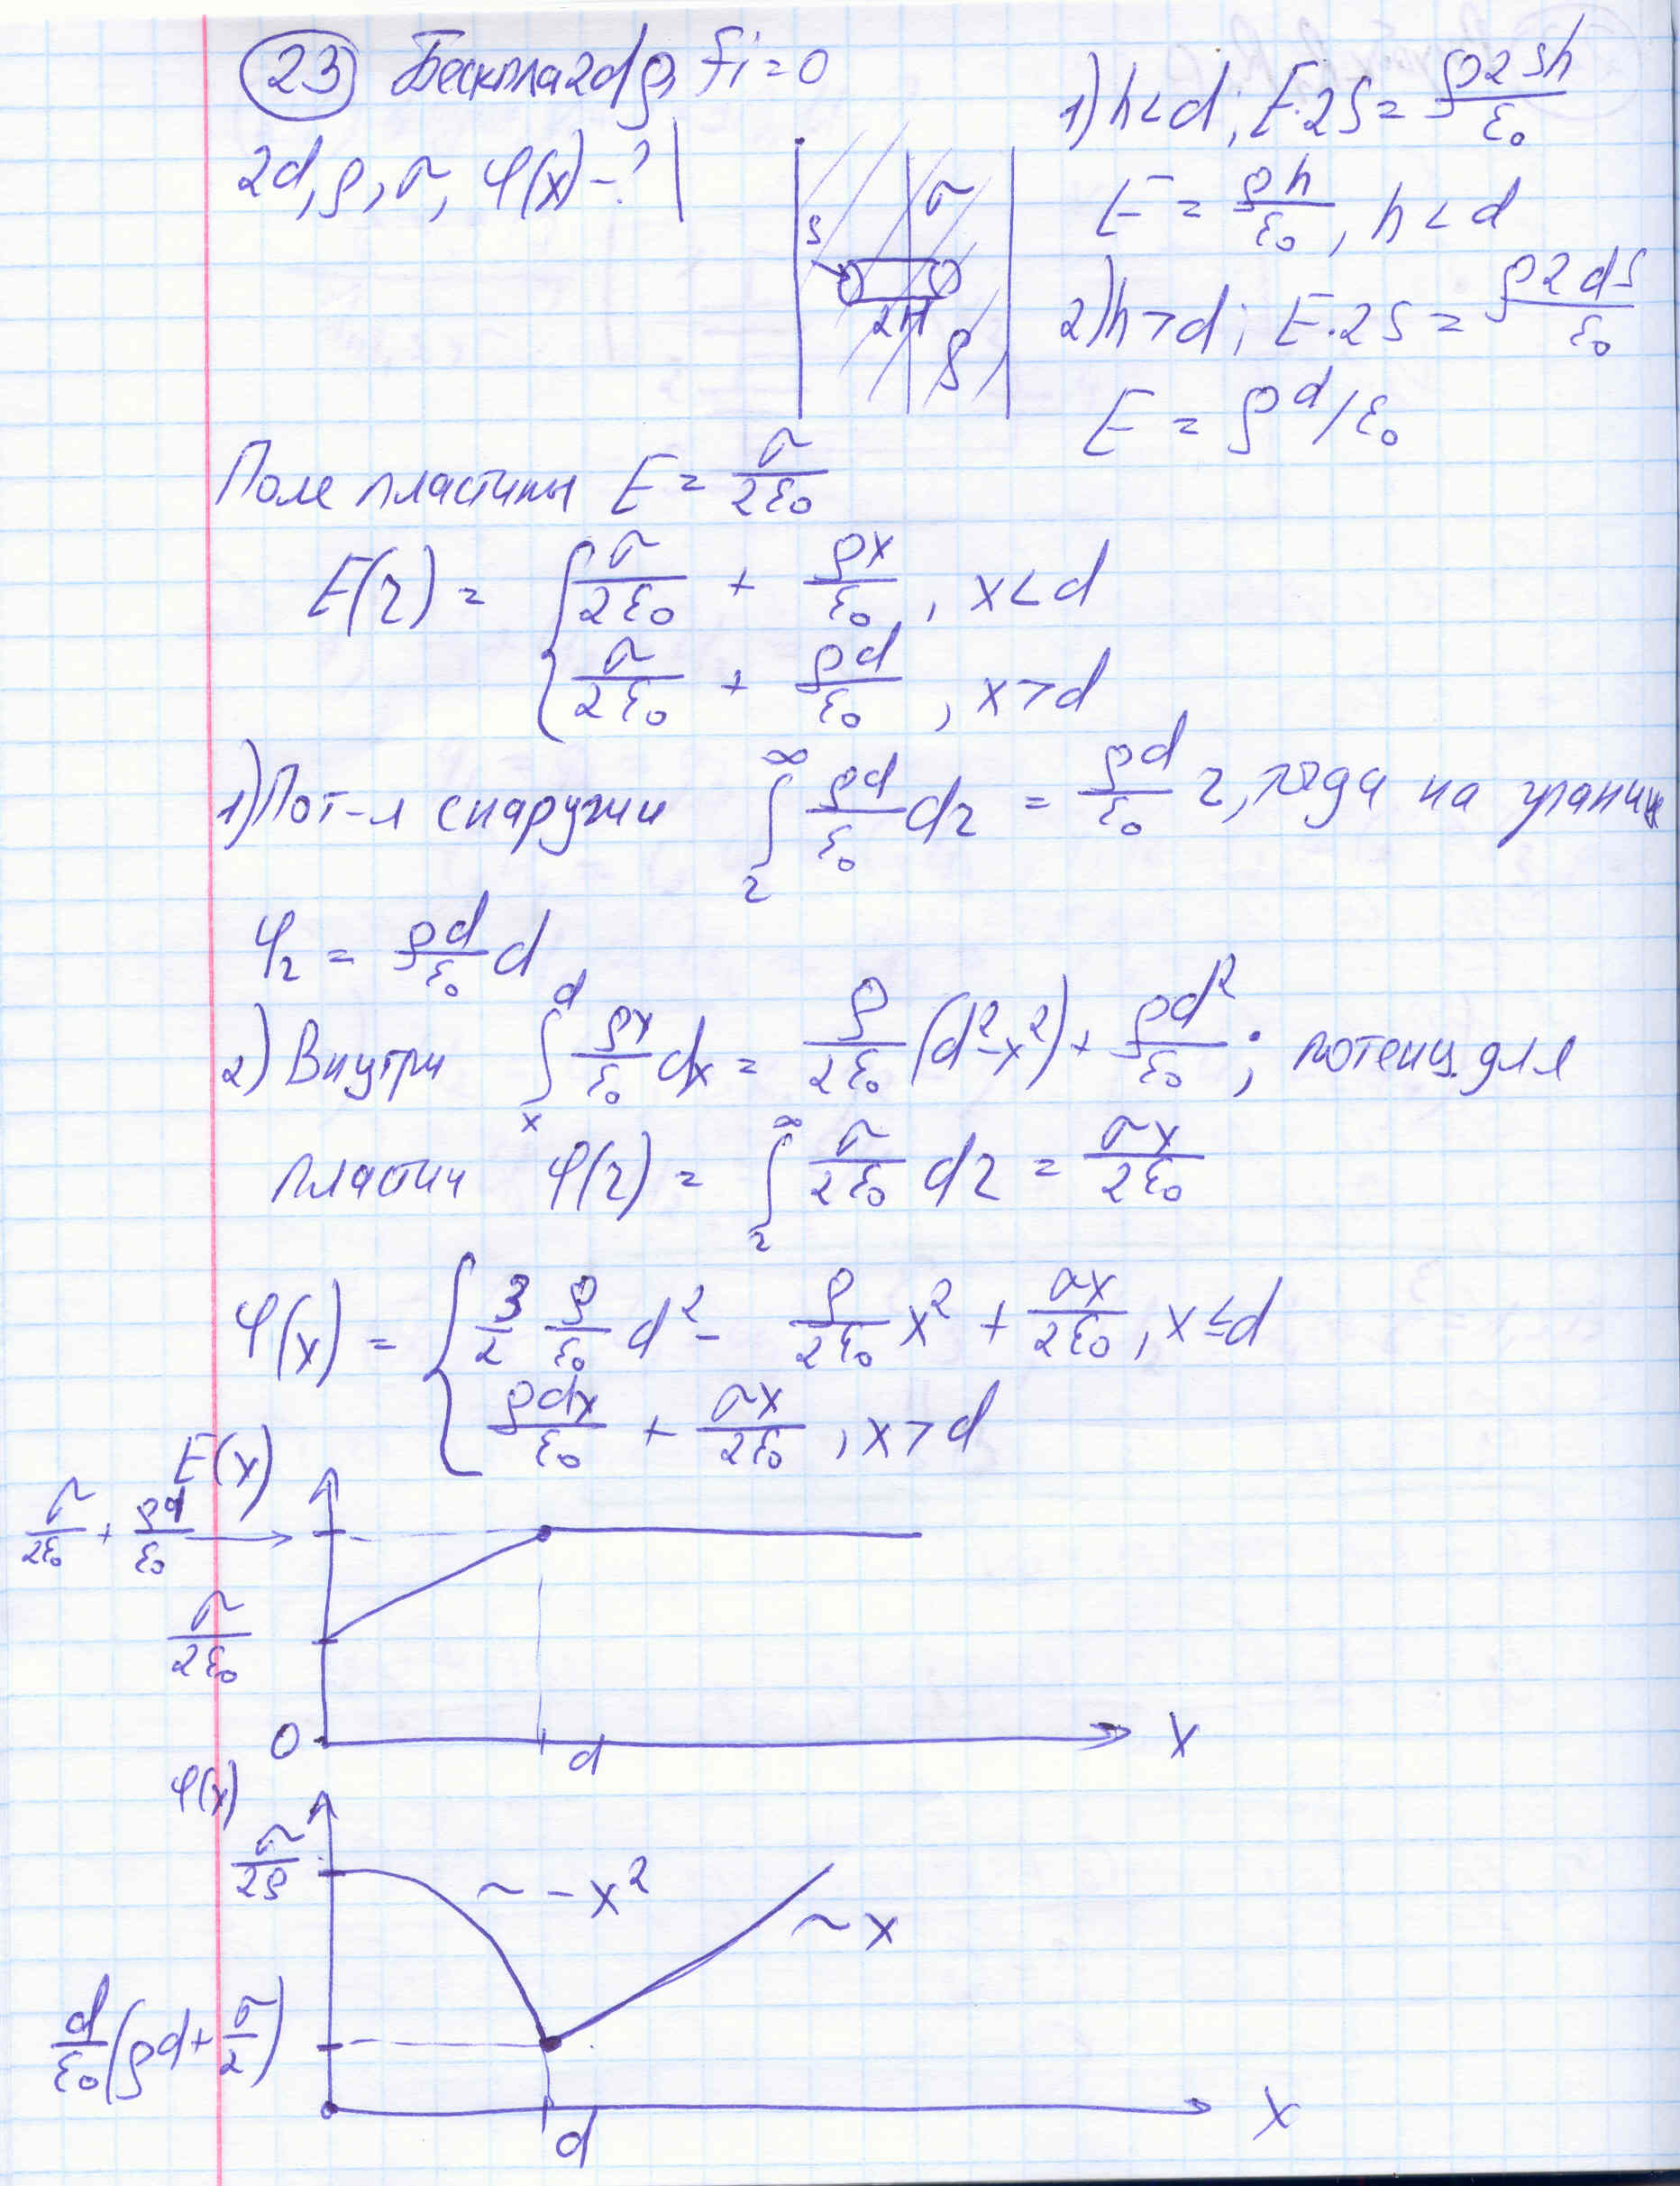 23 Бескпла 2d ρ, fi = 0
2d, ρ, σ, φ(x) - ?
S
σ
2h
ρ
1) h < d; E·2S = ρ2Sh/ε₀
E = ρh/ε₀, h < d
2) h > d; E·2S = ρ2dS/ε₀
E = ρd/ε₀
Поле пластины E = σ/2ε₀
E(r) = { σ/2ε₀ + ρx/ε₀, x < d
σ/2ε₀ + ρd/ε₀, x > d
1) Пот-л снаружи ∫_r^∞ ρd/ε₀ dr = ρd/ε₀ r, тогда на границ
φ₂ = ρd/ε₀ d
2) Внутри ∫_x^d ρx/ε₀ dx = ρ/2ε₀ (d² - x²) + ρd²/ε₀; потенц. для
пластин φ(r) = ∫_r^∞ σ/2ε₀ dr = σx/2ε₀
φ(x) = { 3/2 ρ/ε₀ d² - ρ/2ε₀ x² + σx/2ε₀, x ≤ d
ρdx/ε₀ + σx/2ε₀, x > d
E(x)
σ/2ε₀ + ρd/ε₀
σ/2ε₀
0
d
x
φ(x)
σ/2ρ
~ -x²
~ x
d/ε₀ (ρd + σ/2)
d
x